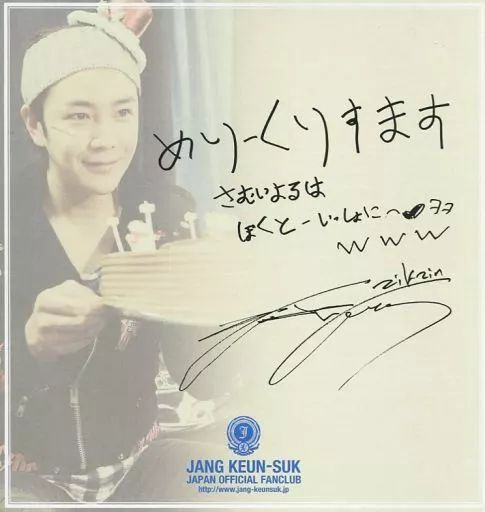 めりーくりすます
さむいよるは
ぼくとーいっしょにへ♥ヲヲ
w w w
zikzin
JANG KEUN-SUK
JAPAN OFFICIAL FANCLUB
http://www.jang-keunsuk.jp